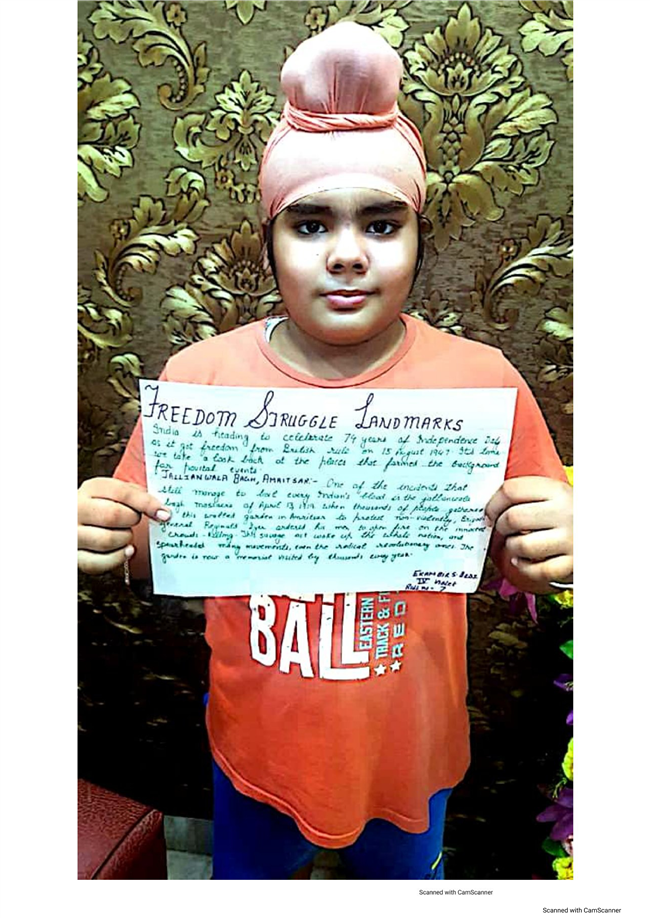 FREEDOM STRUGGLE LANDMARKS
India is heading to celebrate 74 years of Independence Day
as it got freedom from British rule on 15 August 1947. It's time
we take a look back at the places that formed the background
for events
JALLIANWALA BAGH, AMRITSAR:- One of the incidents that
still manage to boil every Indian's blood is the jallianwala
bagh massacre of April 13 1919 when thousands of people gathered
this walled garden in Amritsar to protest non-violently,
general Reginald Dyer ordered his men to open fire on the innocent
crowds - killing. This savage act woke up the whole nation, and
sparheaded many movements, even the radical revolutionary ones. The
garden is now a memorial visited by thousands every year.
IV
Roll no- 7
BALL
EASTERN
TRACK & FI
RED
Scanned with CamScanner
Scanned with CamScanner